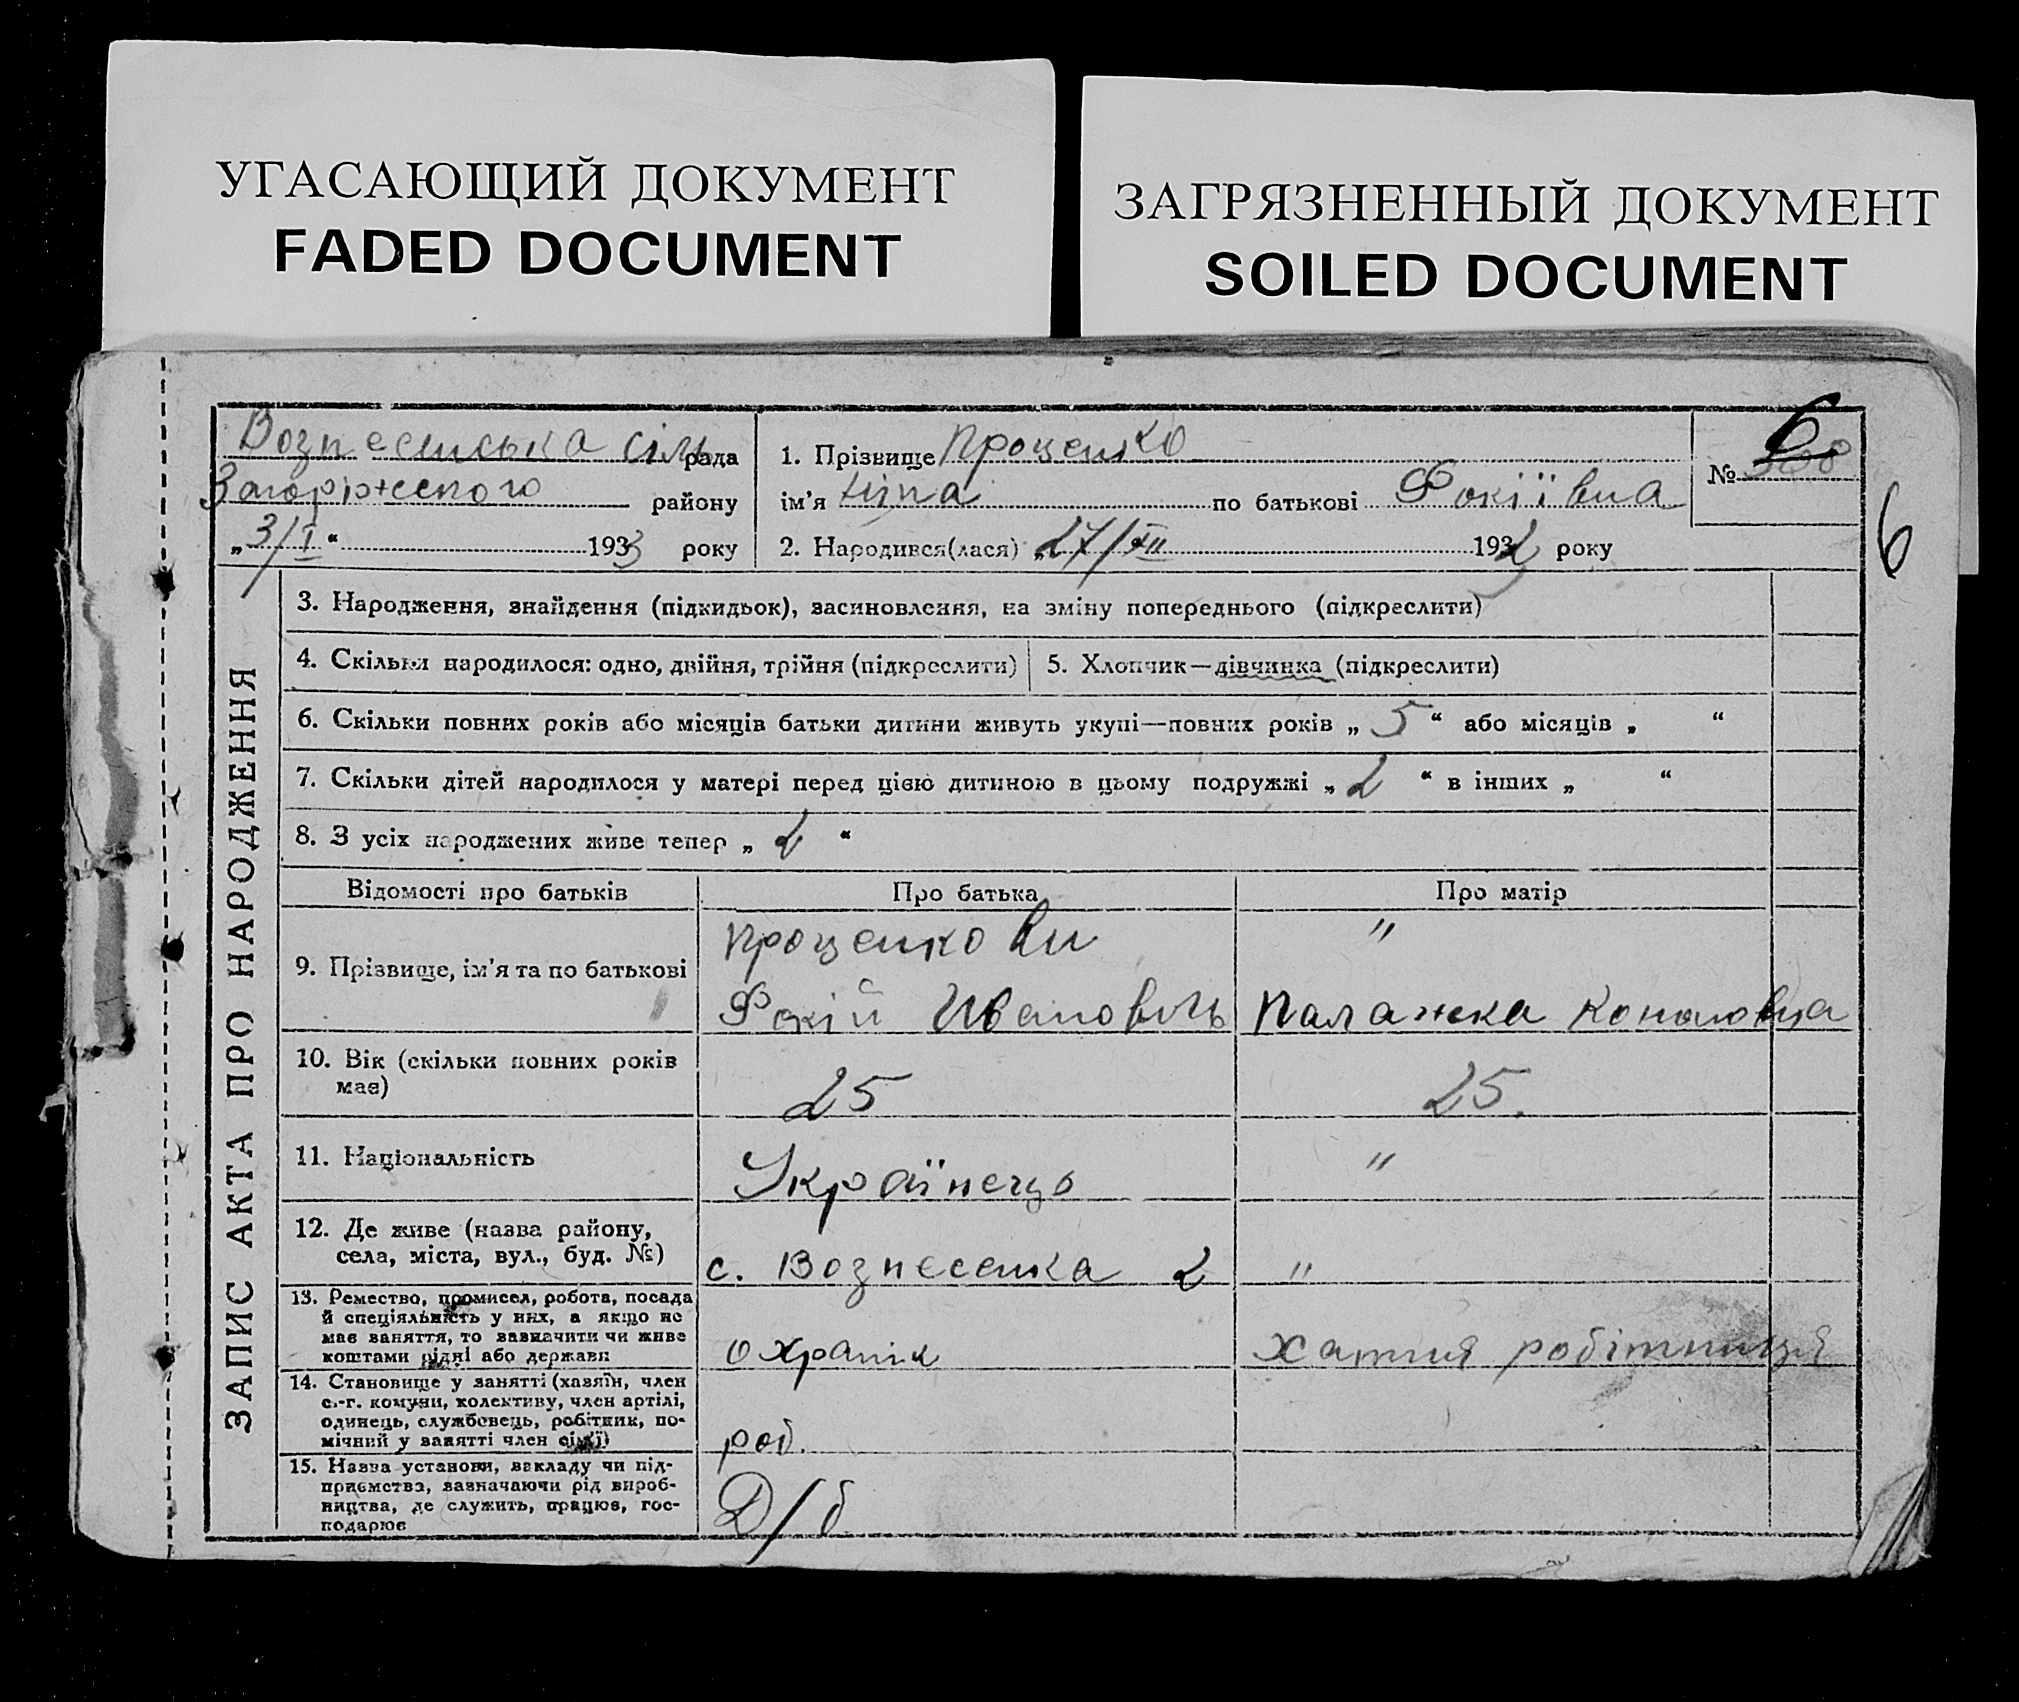 УГАСАЮЩИЙ ДОКУМЕНТ
FADED DOCUMENT
ЗАГРЯЗНЕННЫЙ ДОКУМЕНТ
SOILED DOCUMENT
Вознесенська сіль рада
Запоріжського району
„3/I“ 1933 року
1. Прізвище Проценко
ім'я Ніна по батькові Фокіївна
2. Народився(лася) „27/XII 1932 року
№
6
6
ЗАПИС АКТА ПРО НАРОДЖЕННЯ
3. Народження, знайдення (підкидьок), засиновлення, на зміну попереднього (підкреслити)
4. Скільки народилося: одно, двійня, трійня (підкреслити)
5. Хлопчик—дівчинка (підкреслити)
6. Скільки повних років або місяців батьки дитини живуть укупі—повних років „ 5 “ або місяців „ “
7. Скільки дітей народилося у матері перед цією дитиною в цьому подружжі „ 2 “ в інших „ “
8. З усіх народжених живе тепер „ 2 “
Відомості про батьків
Про батька
Про матір
9. Прізвище, ім'я та по батькові
Проценкови
Фокій Ивановичь
"
Палажка
10. Вік (скільки повних років
має)
25
25.
11. Національність
Українець
"
12. Де живе (назва району,
села, міста, вул., буд. №)
с. Вознесенка 2
"
13. Ремество, промисел, робота, посада
й спеціяльність у них, а якщо не
має заняття, то зазначити чи живе
коштами рідні або держави
охранік
хатня робітниця
14. Становище у занятті (хазяїн, член
с.-г. комуни, колективу, член артілі,
одинець, службовець, робітник, по-
мічний у занятті член сім'ї)
роб.
15. Назва установи, закладу чи під-
приємства, зазначаючи рід вироб-
ництва, де служить, працює, гос-
подарює
Д/б